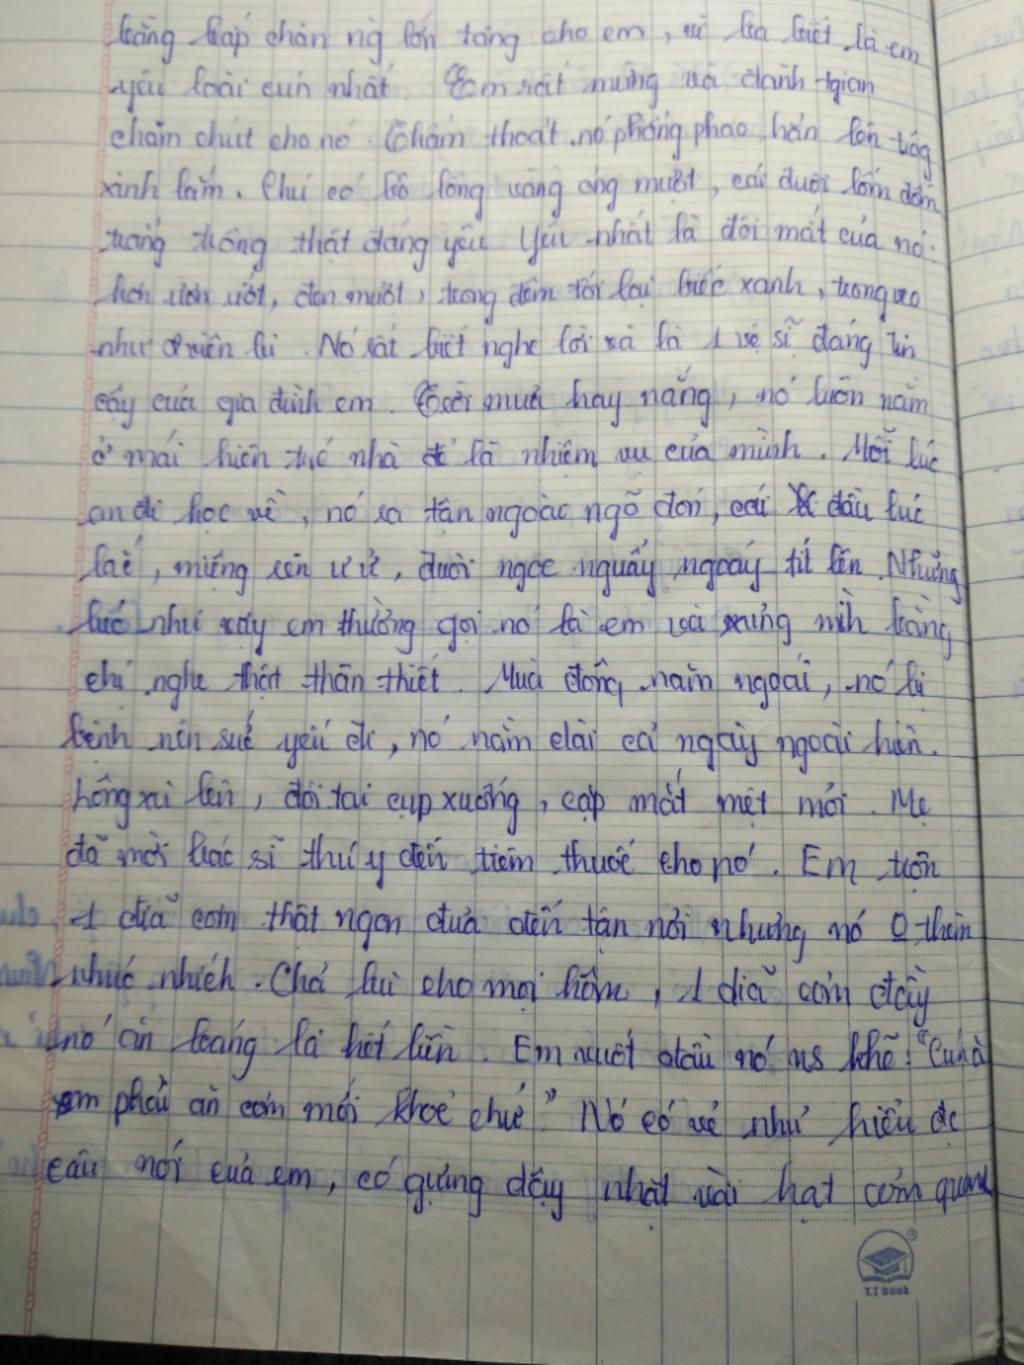 bằng bắp chân ng lớn tặng cho em, vì ba biết là em
yêu loài cún nhất. Em rất mừng và dành tgian
chăm chút cho nó. Thấm thoát nó phổng phao hẳn lên trông
xinh lắm. Chú có bộ lông vàng óng mượt, cái đuôi lốm đốm
trắng trông thật đáng yêu. Yêu nhất là đôi mắt của nó.
ươn ướt, đen mướt, trong đêm tối lại biếc xanh, trong veo
như viên bi. Nó rất biết nghe lời và là 1 vệ sĩ đáng tin
cậy của gia đình em. Trời mưa hay nắng, nó luôn nằm
ở mái hiên trc nhà là nhiệm vụ của mình. Mỗi lúc
em đi học về, nó ra tận ngoài ngõ đón, cái đầu lúc
lắc, miệng rên ư ử, đuôi ngoe nguẩy ngoáy tít lên. Những
lúc như vậy em thường gọi nó là em và xưng mình bằng
chị nghe thật thân thiết. Mùa đông năm ngoái, nó bị
bệnh nên sức yếu đi, nó nằm dài cả ngày ngoài hiên.
Lông xù lên, đôi tai cụp xuống, cặp mắt mệt mỏi. Mẹ
đã mời bác sĩ thú y đến tiêm thuốc cho nó. Em trộn
1 dĩa cơm thật ngon đưa đến tận nơi nhưng nó 0 thèm
nhúc nhích. Chả bù cho mọi hôm, 1 dĩa cơm đầy
nó ăn loáng là hết liền. Em vuốt đầu nó ns khẽ: "Cún à
em phải ăn cơm mới khoẻ chứ" Nó có vẻ như hiểu đc
câu nói của em, cố gượng dậy nhặt vài hạt cơm quanh
T.T Book